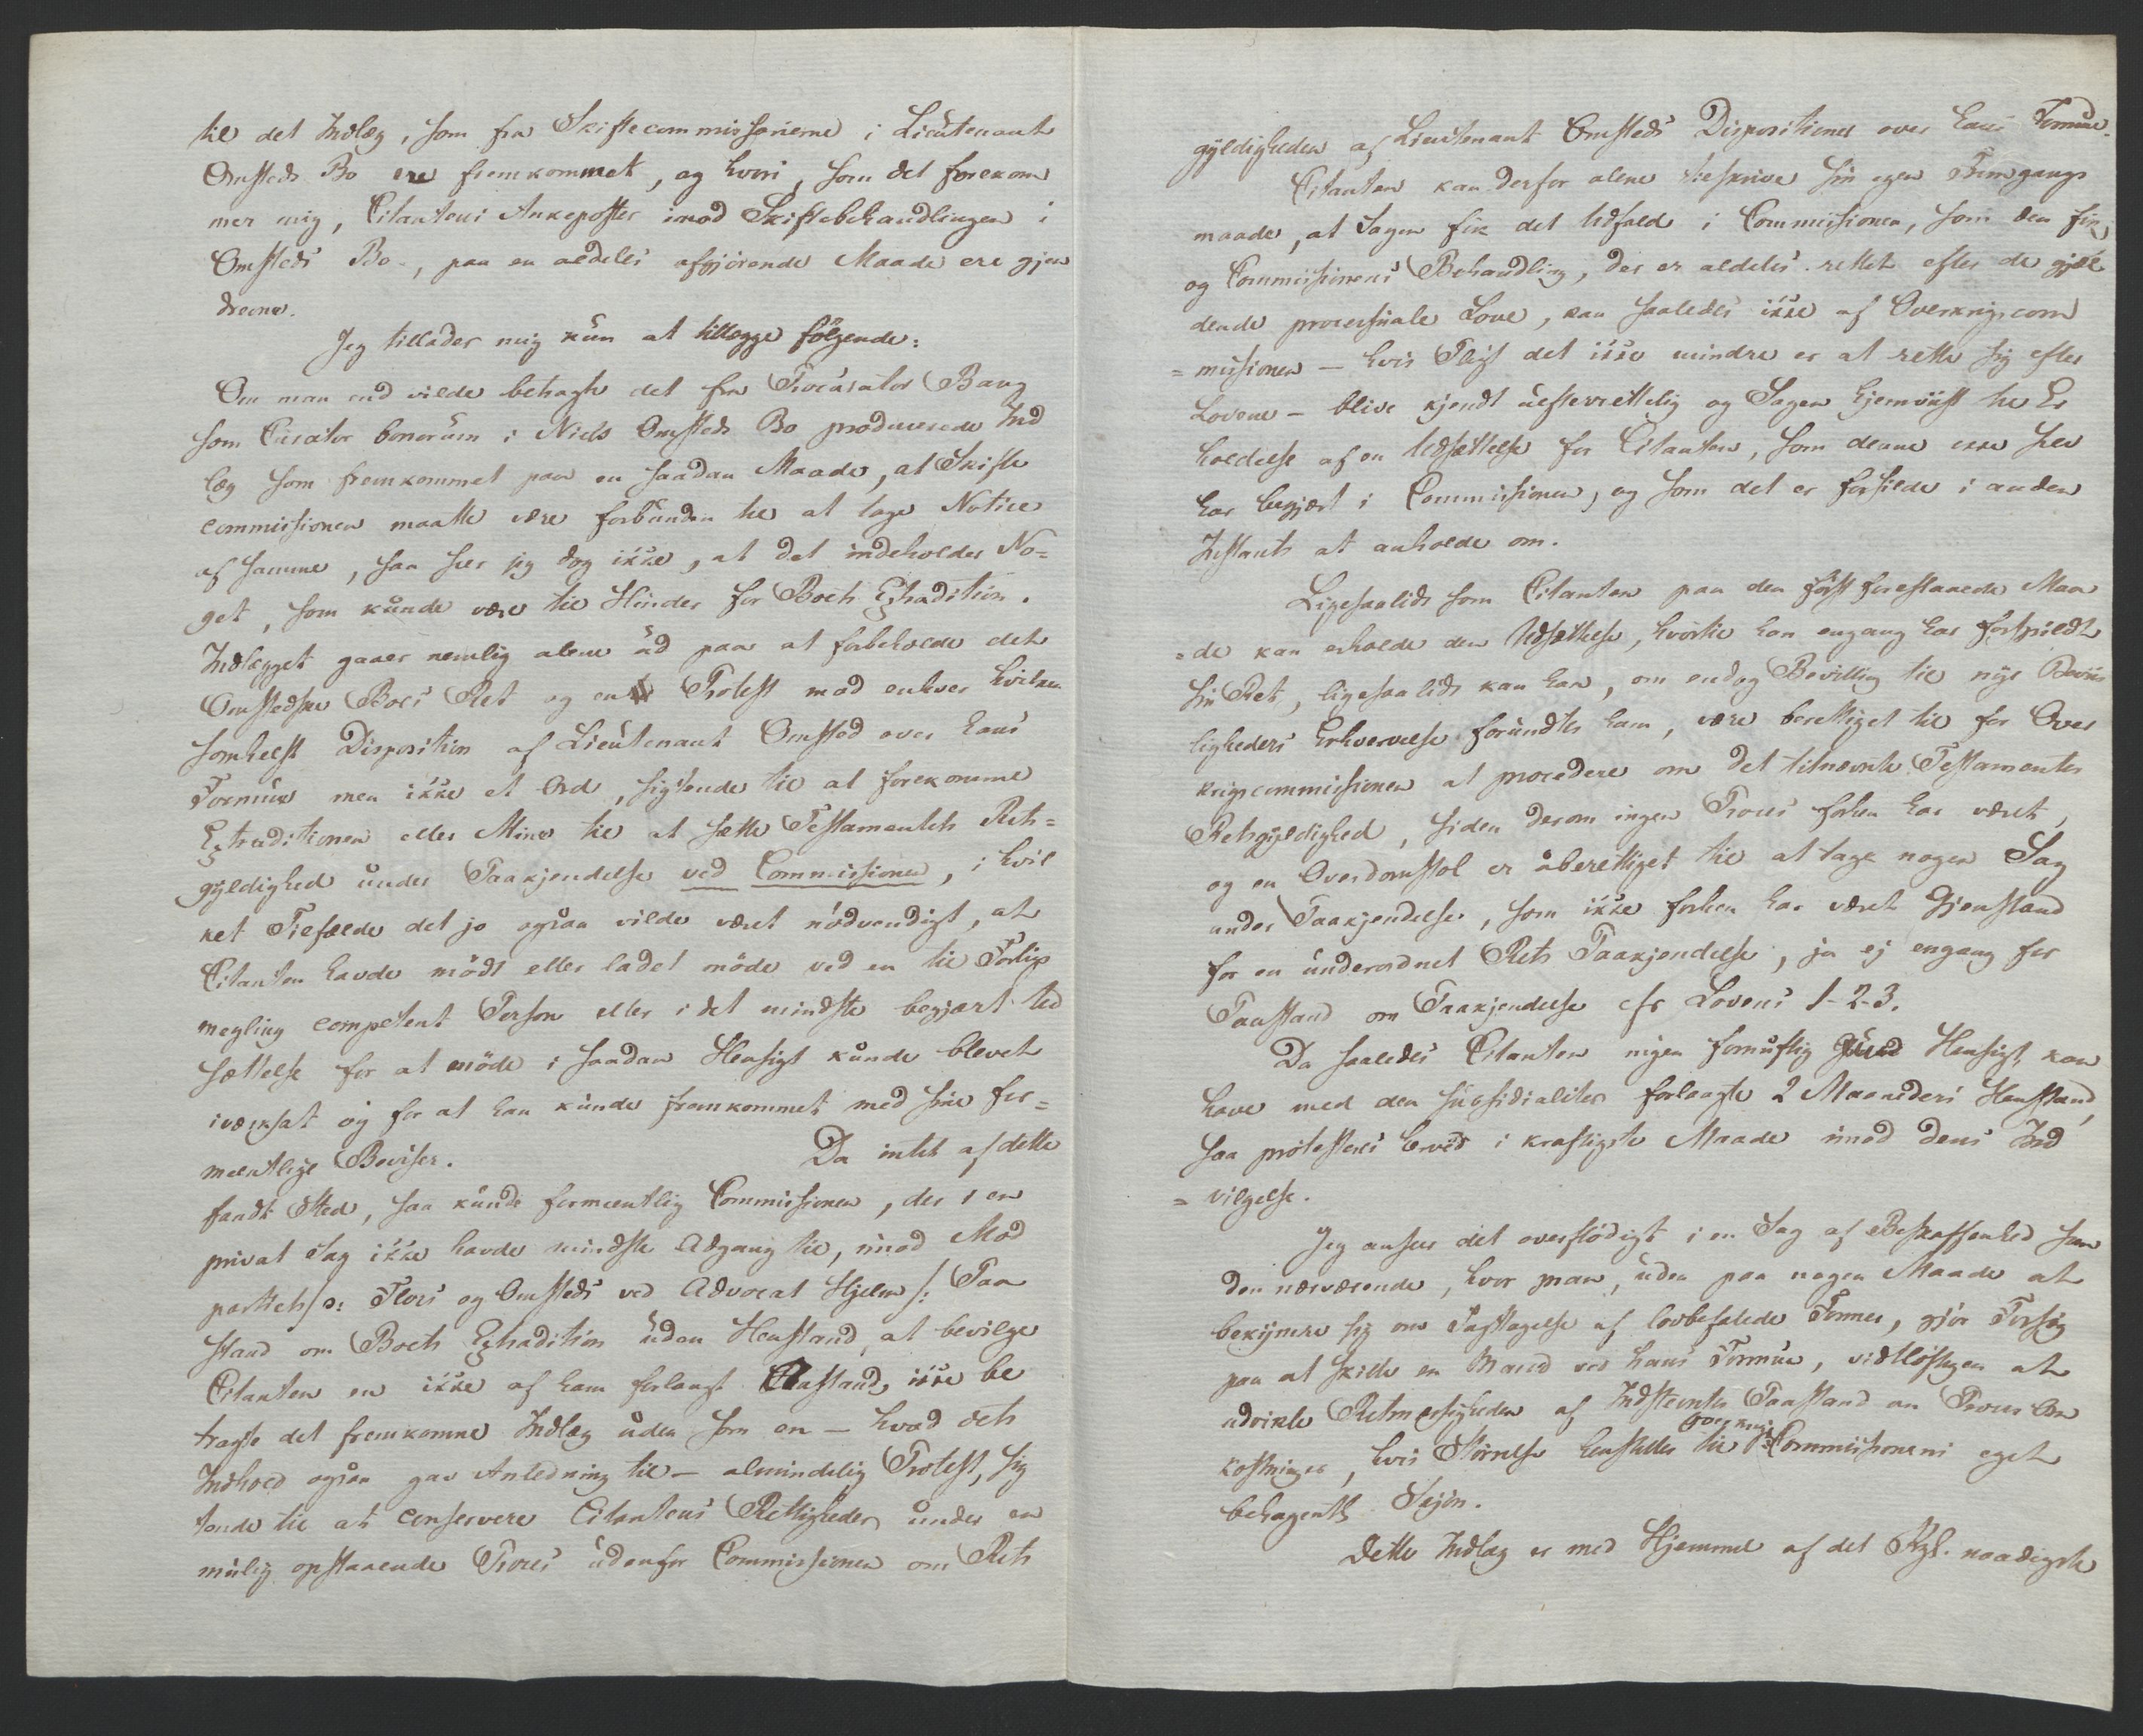 til det Indlæg, som fra Skiftecommissarierne i Lieutenant
Omsteds Bo ere fremkommet, og hvori, som det forekom
mer mig, Citantens Ankeposter imod Skiftebehandlingen i
Omsteds Bo, paa en aldeles afgjörende Maade ere gjen
drevne.
Jeg tillader mig kun at tillægge fölgende:
Om man end vilde betragte det fra Procurator Bang
som Curator bonorum i Niels Omsteds Bo producerede Ind
læg som fremkommet paa en saadan Maade, at Skifte
commissionen maatte være forbunden til at tage Notice
af samme, saa seer jeg dog ikke, at det indeholder No=
get, som kunde være til Hinder for Boets Extradition.
Indlægget gaaer nemlig alene ud paa at forbeholde det
Omstedske Boes Ret og en Protest mod enhver hvilken
somhelst Disposition af Lieutenant Omsted over hans
Formue men ikke et Ord, sigtende til at forekomme
Extraditionen eller Mine til at sætte Testamentets Rets=
gyldighed under Paakjendelse ved Commissionen, i hvil
ket Tilfælde det jo ogsaa vilde været nödvendigt, at
Citanten havde mödt eller ladet möde ved en til Forligs
megling competent Person eller i det mindste begjært Ud
sættelse for at möde i saadan Hensigt kunde blevet
iværksat og for at han kunde fremkommet med sine for=
meentlige Beviser. Da intet af dette
fandt Sted, saa kunde formeentlig Commissionen, der i en
privat Sag ikke havde mindste Adgang til, imod Mod
partets /: Flors og Omsteds ved Advocat Hjelm /: Paa
stand om Boets Extradition uden Henstand, at bevilge
Citanten en ikke af ham forlangt Henstand, ikke be
tragte det fremkomne Indlæg uden som en – hvad dets
Indhold ogsaa gav Anledning til – almindelig Protest, sig
tende til at conservere Citantens Rettigheder under en
mulig opstaaende Proces udenfor Commissionen om Rets
gyldigheden af Lieutenant Omsteds Dispositioner over hans Formue.
Citanten kan derfor alene tilskrive sin egen Fremgangs
maade, at Sagen fik det Udfald i Commissionen, som den fik,
og Commissionens Behandling, der er aldeles rettet efter de gjæl
dende processuale Love, kan saaledes ikke af Overkrigscom
=missionen – hvis Pligt det ikke mindre er at rette sig efter
Lovene – blive kjendt uefterrettelig og Sagen hjemviist til Er
holdelse af en Udsættelse for Citanten, som denne ikke selv
har begjært i Commissionen, og som det er forsilde i anden
Instants at anholde om.
Ligesaalidt som Citanten paa den först forestaaede Maa
=de kan erholde den Udsættelse, hvortil han engang har forspildt
sin Ret, ligesaa lidt kan han, om endog Bevilling til nye Beviis
ligheders Erhvervelse forundtes ham, være berettiget til for Over
krigscommissionen at procedere om det titnævnte Testamentes
Retsgyldighed, siden derom ingen Proces forhen har været,
og en Overdomstol er uberettiget til at tage nogen Sag
under Paakjendelse, som ikke forhen har været Gjenstand
for en underordnet Rets Paakjendelse, ja ej engang for
Paastand om Paakjendelse cfr Lovens 1-2-3.
Da saaledes Citanten ingen fornuftig Hensigt kan
have med den subsidialiter forlangte 2 Maaneders Henstand,
saa protesteres herved i kraftigste Maade imod dens Ind
=vilgelse.
Jeg anseer det overflödigt i en Sag af Beskaffenhed som
den nærværende, hvor man, uden paa nogen Maade at
bekymre sig om Iagttagelse af lovbefalede Former, gjör Forsög
paa at skille en Mand ved hans Formue, vidtlöftigen at
udvikle Retmæssigheden af Indstevntes Paastand om Proces Om
kostninger, hvis Störrelse henstilles til Overkrigs Commissionens eget
behagentlige Skjön.
Dette Indlæg er med Hjemmel af det Kgl. naadigste